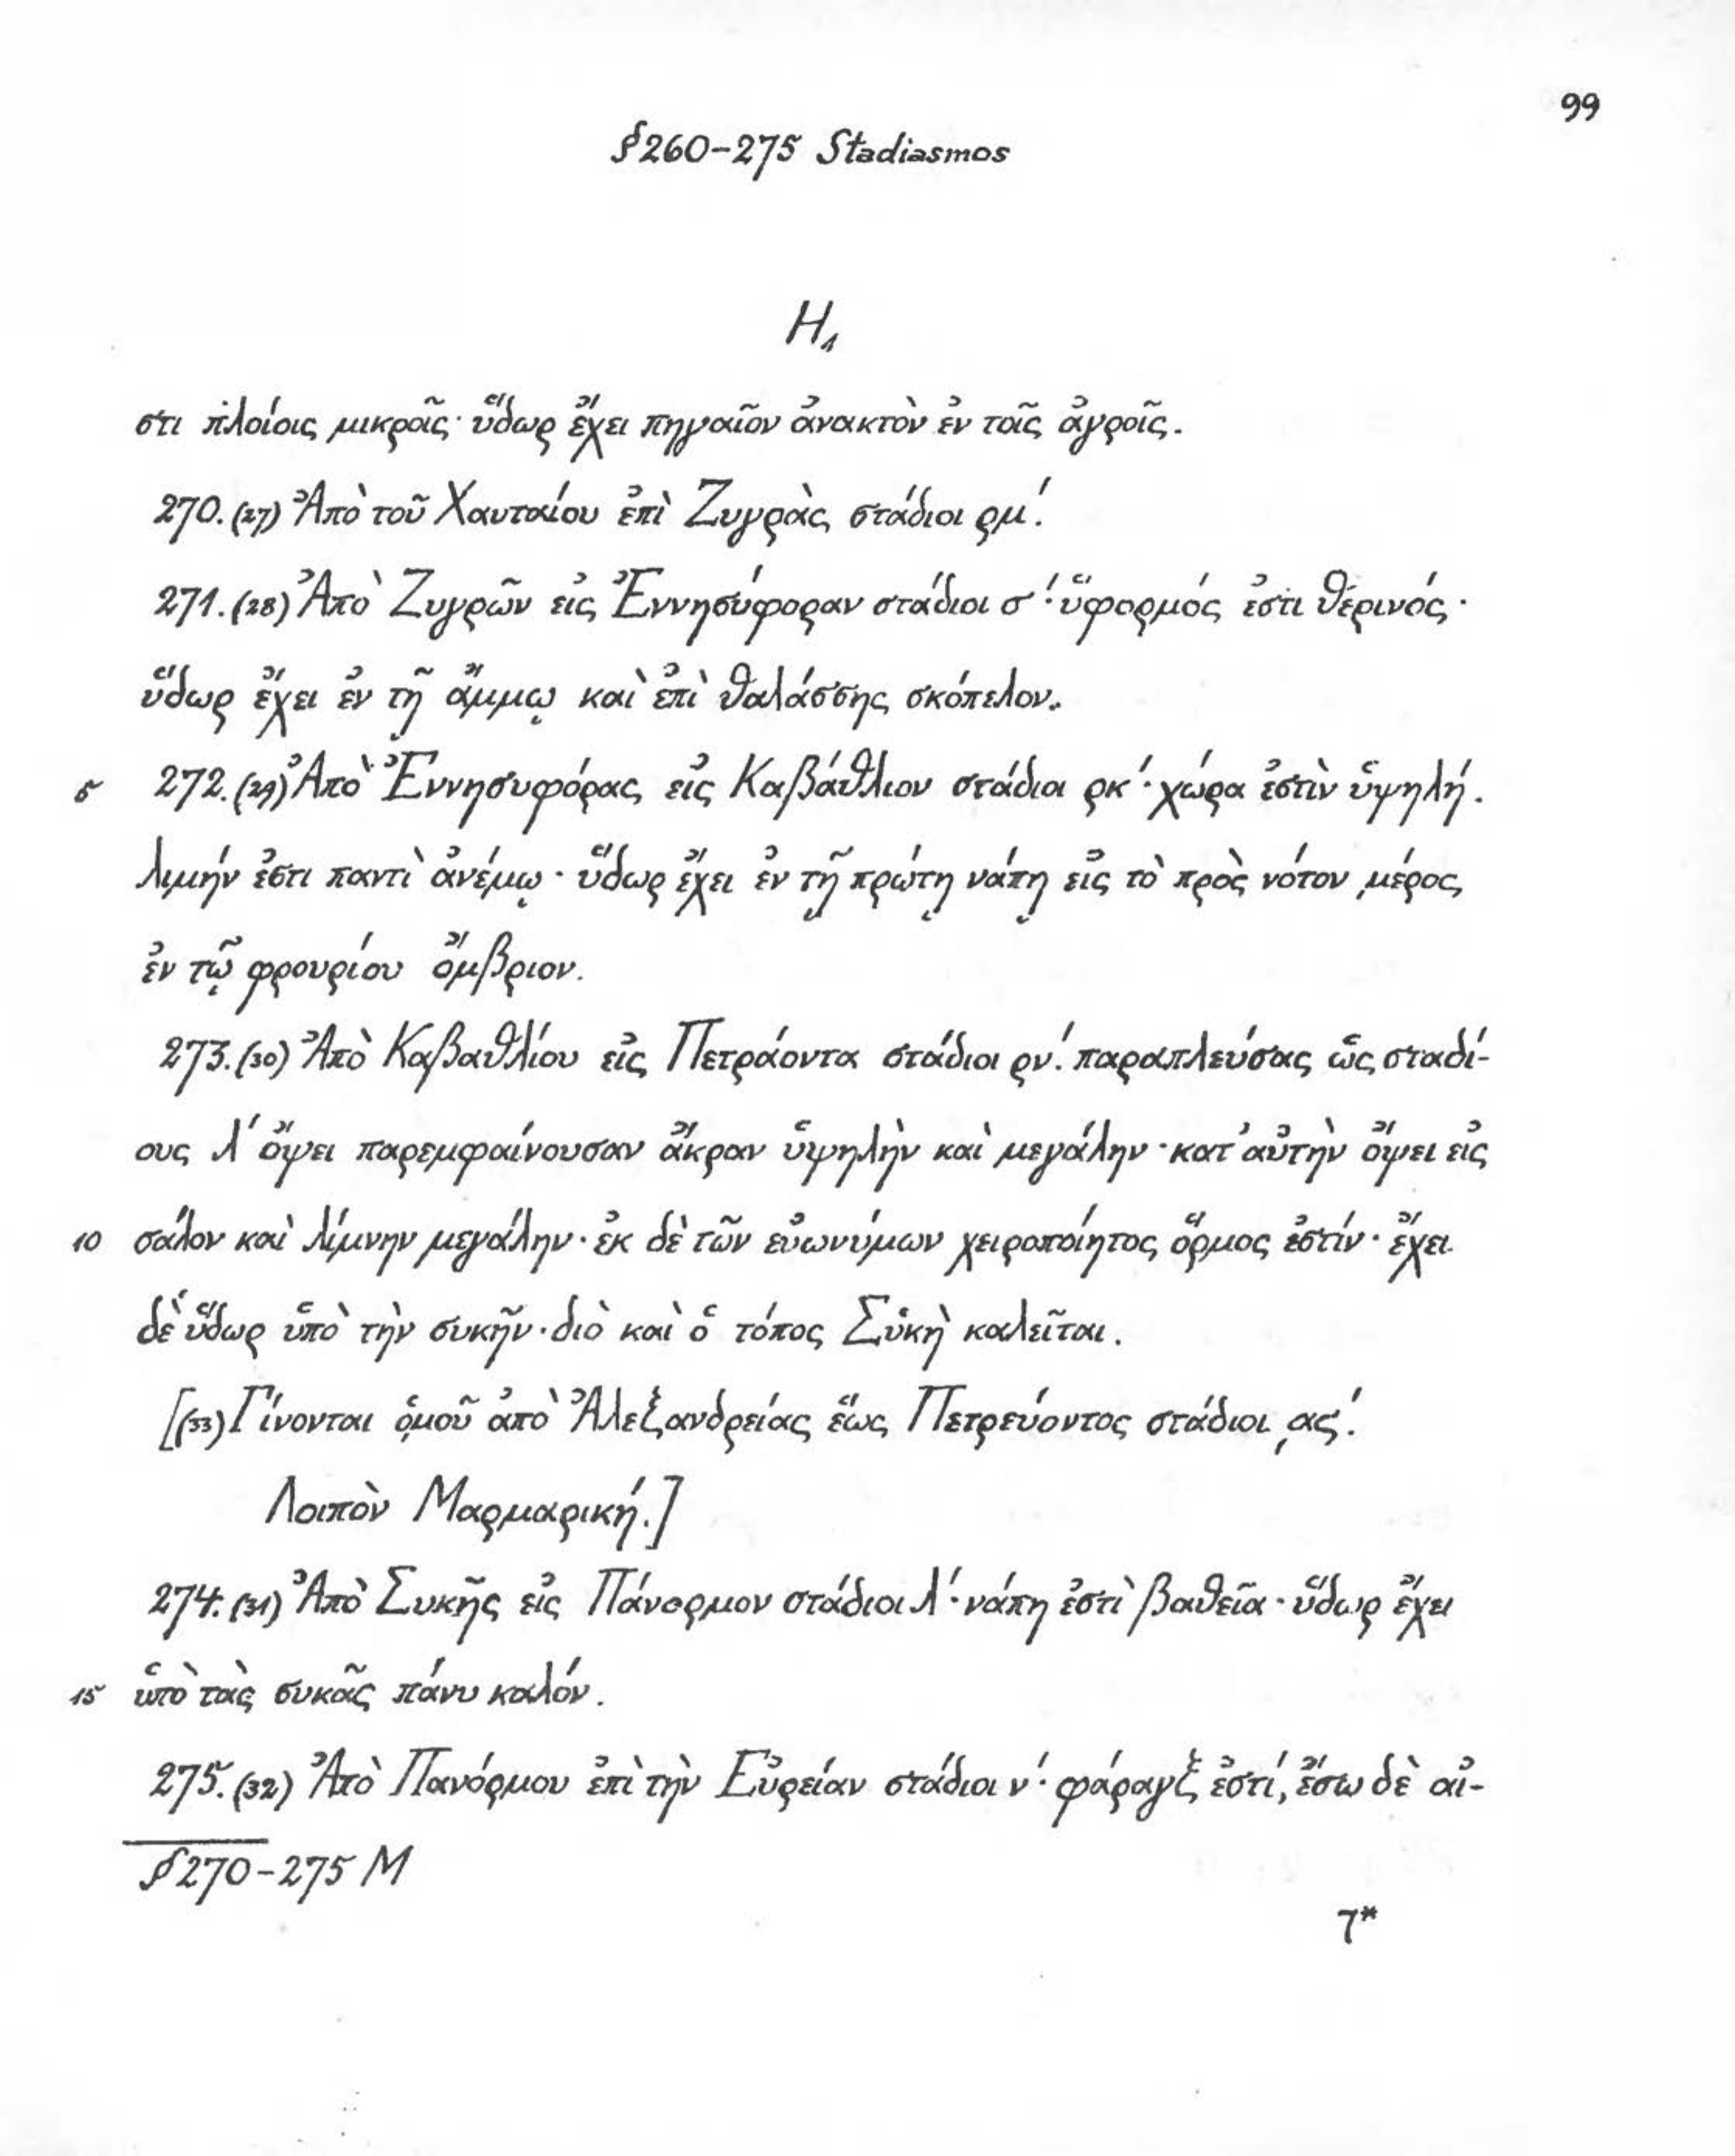 99
§260-275 Stadiasmos
H₁
στι πλοίοις μικροῖς· ὕδωρ ἔχει πηγαῖον ἀνακτὸν ἐν τοῖς ἀγροῖς.
270. (27) Ἀπὸ τοῦ Χαυταίου ἐπὶ Ζυγρὰς στάδιοι ρμʹ.
271. (28) Ἀπὸ Ζυγρῶν εἰς Ἐννησύφοραν στάδιοι σʹ· ὕφορμός ἐστι θερινός·
ὕδωρ ἔχει ἐν τῇ ἄμμῳ καὶ ἐπὶ θαλάσσης σκόπελον.
5 272. (29) Ἀπὸ Ἐννησυφόρας εἰς Καβάθλιον στάδιοι ρκʹ· χώρα ἐστὶν ὑψηλή.
λιμήν ἐστι παντὶ ἀνέμῳ· ὕδωρ ἔχει ἐν τῇ πρώτῃ νάπῃ εἰς τὸ πρὸς νότον μέρος
ἐν τῷ φρουρίου ὄμβριον.
273. (30) Ἀπὸ Καβαθλίου εἰς Πετράοντα στάδιοι ρνʹ. παραπλεύσας ὡς σταδί-
ους λʹ ὄψει παρεμφαίνουσαν ἄκραν ὑψηλὴν καὶ μεγάλην· κατ᾽ αὐτὴν ὄψει εἰς
10 σάλον καὶ λίμνην μεγάλην· ἐκ δὲ τῶν εὐωνύμων χειροποίητος ὅρμος ἐστίν· ἔχει
δὲ ὕδωρ ὑπὸ τὴν συκῆν· διὸ καὶ ὁ τόπος Σύκὴ καλεῖται.
[(33) Γίνονται ὁμοῦ ἀπὸ Ἀλεξανδρείας ἕως Πετρεύοντος στάδιοι ͵αςʹ.
Λοιπὸν Μαρμαρική.]
274. (31) Ἀπὸ Συκῆς εἰς Πάνορμον στάδιοι λʹ· νάπη ἐστὶ βαθεῖα· ὕδωρ ἔχει
15 ὑπὸ τὰς συκᾶς πάνυ καλόν.
275. (32) Ἀπὸ Πανόρμου ἐπὶ τὴν Εὐρείαν στάδιοι νʹ· φάραγξ ἐστί, ἔσω δὲ αἰ-
§270-275 M
7*